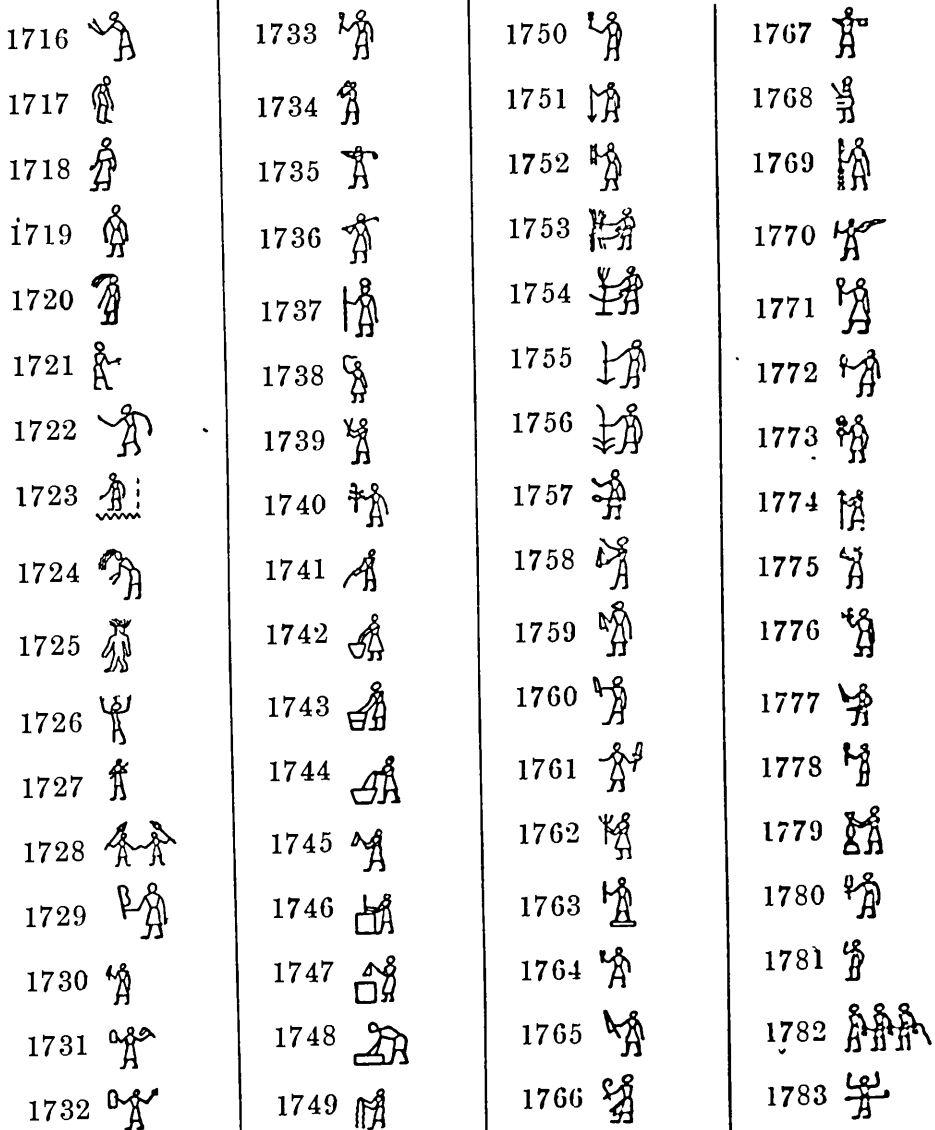 1716
1717
1718
1719
1720
1721
1722
1723
1724
1725
1726
1727
1728
1729
1730
1731
1732
1733
1734
1735
1736
1737
1738
1739
1740
1741
1742
1743
1744
1745
1746
1747
1748
1749
1750
1751
1752
1753
1754
1755
1756
1757
1758
1759
1760
1761
1762
1763
1764
1765
1766
1767
1768
1769
1770
1771
1772
1773
1774
1775
1776
1777
1778
1779
1780
1781
1782
1783